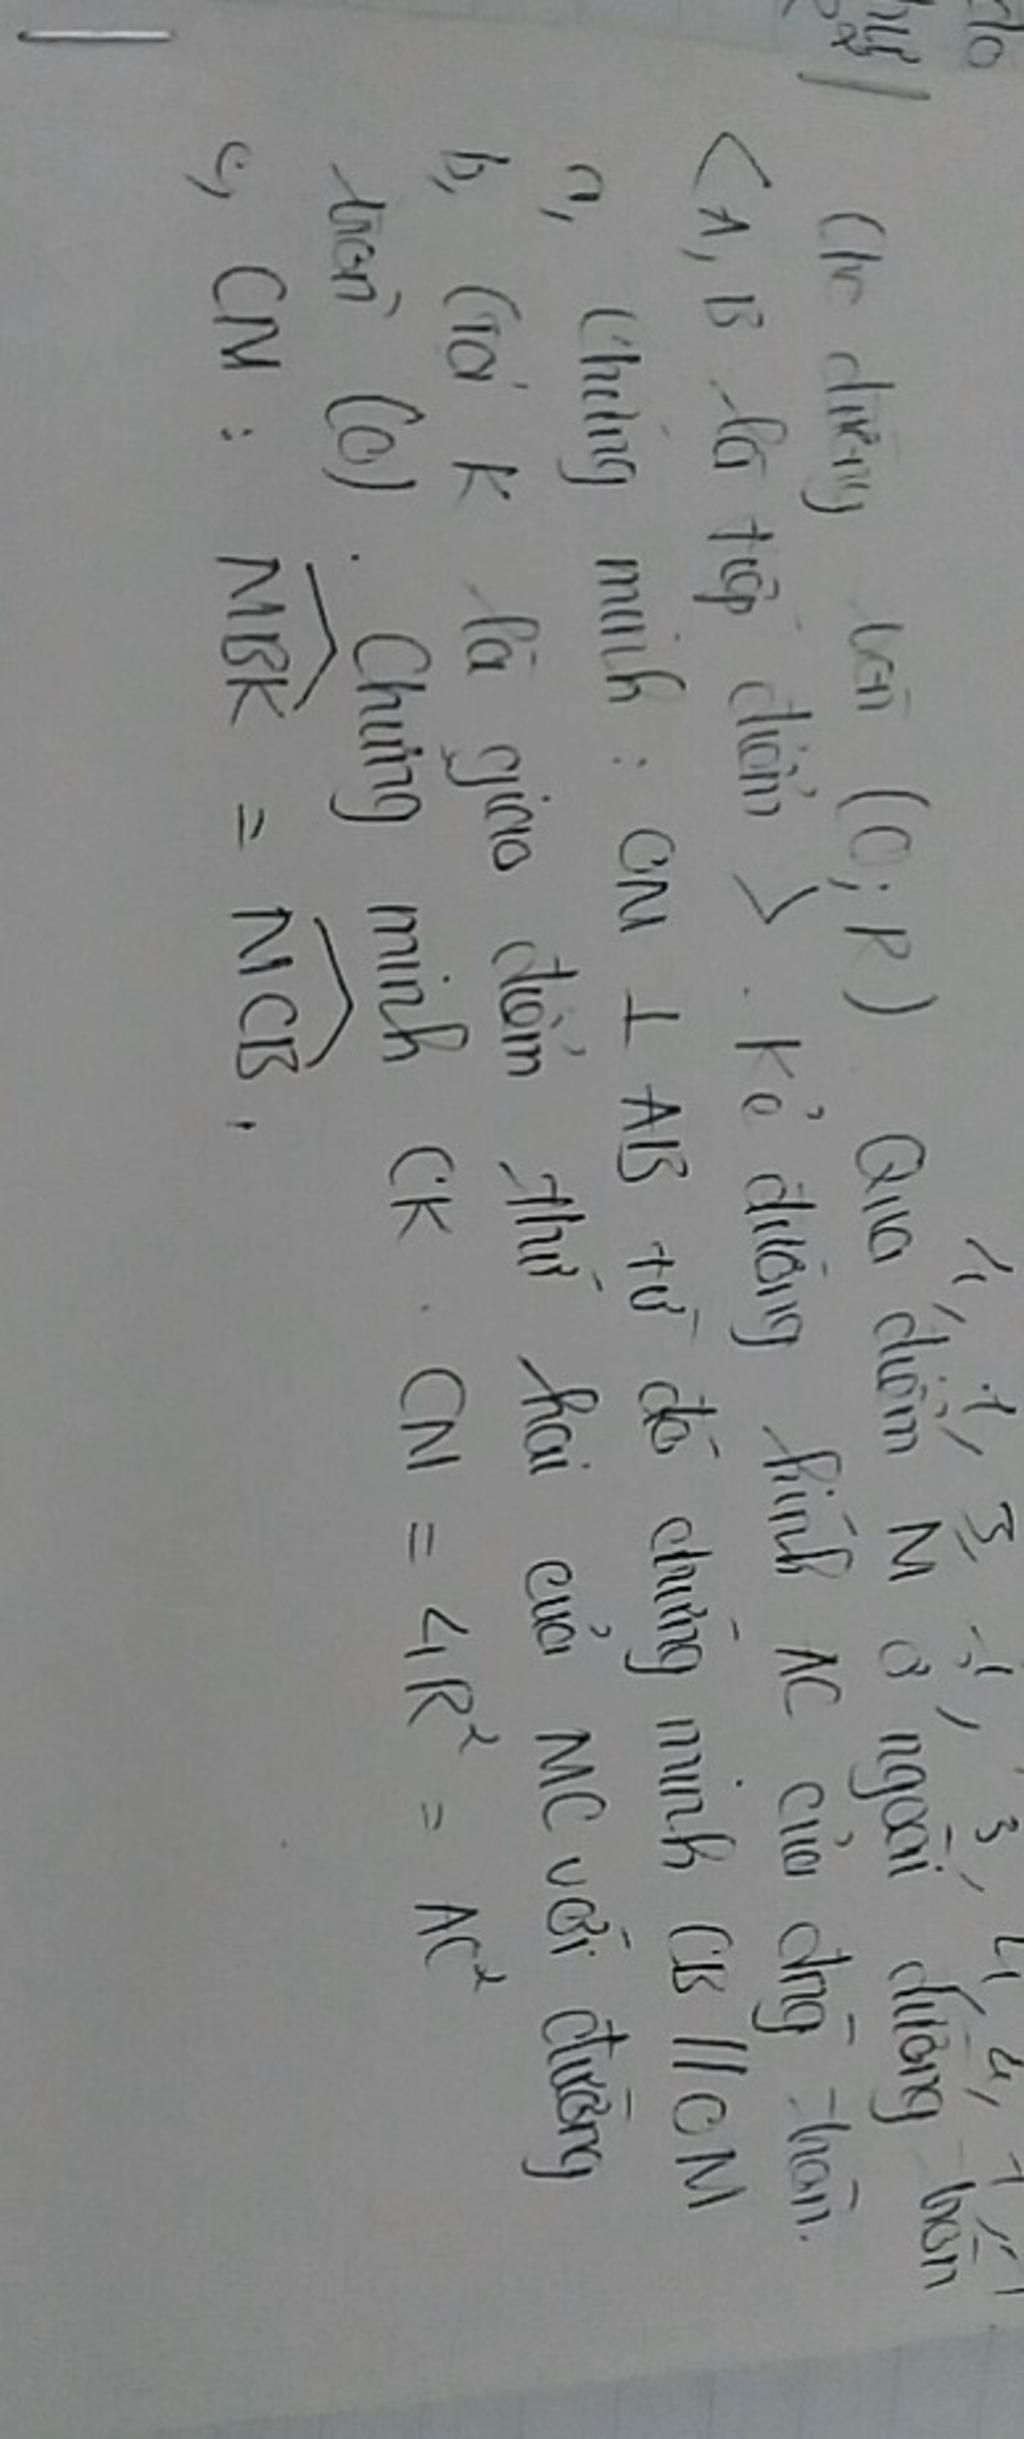 Cho đường tròn (O; R) Qua điểm M ở ngoài đường tròn
< A, B là tiếp điểm > . Kẻ đường kính AC của đng tròn.
a, Chứng minh : OM ⊥ AB từ đó chứng minh CB // OM
b, Gọi K là giao điểm thứ hai của MC với đường
tròn (O) . Chứng minh CK . CM = 4R² = AC²
c, CM : MBK = MCB .